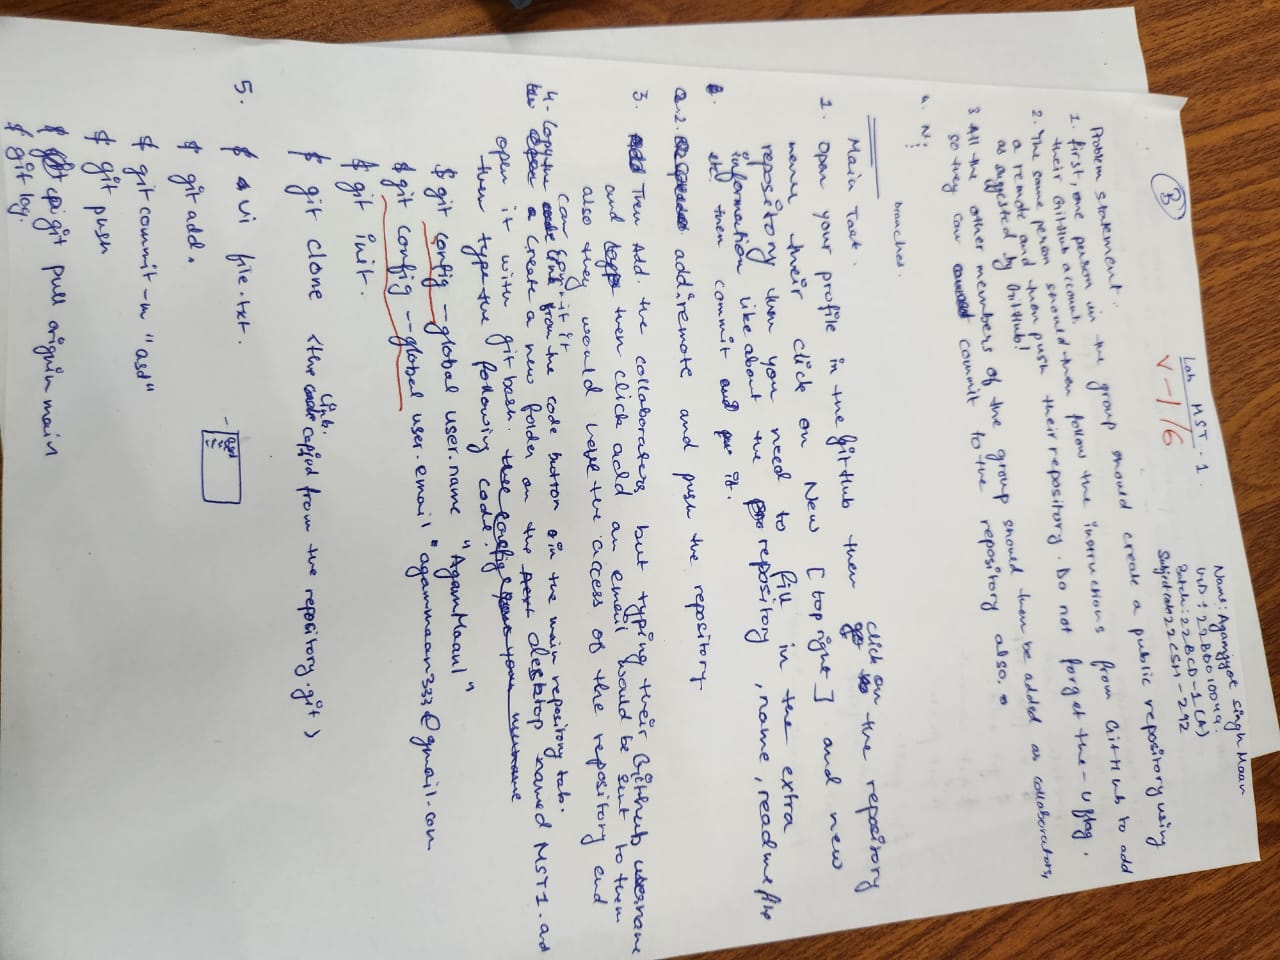 Name: Agamjyot Singh Maan
UID: 22BDO10049.
Batch: 22BCD-1(A)
Subject code: 22CSH-292
Lab MST-1.
V-1/6
B
Problem statement.
1. first, one person in the group should create a public repository using
their GitHub account.
2. The same person should then follow the instructions from GitHub to add
a remote and then push their repository. Do not forget the -u flag.
as suggested by GitHub!
3 All the other members of the group should then be added as collaborators,
so they can commit to the repository also.
4.
branches.
Main Task.
1. Open your profile in the GitHub then click on the repository
menu their click on New [top right] and new
repository then you need to fill in the extra
information like about the repository, name, readme file
then commit it.
2. add remote and push the repository
3. Then Add. the collaborators but typing their Github username
and then click add an email would be sent to them
also they would have the access of the repository and
can
4. Copy the link from the code button in the main repository tab.
create a new folder on the desktop named MST1. ad
open it with git bash.
then type the following code.
$ git config --global user.name "AgamMaan1"
$ git config --global user.email "agammaan333@gmail.com
$ git init.
$ git clone <the link. copied from the repository.git>
5. $ vi file.txt.
$ git add.
$ git commit -m "asd"
$ git push
$ git pull origin main
$ git log.